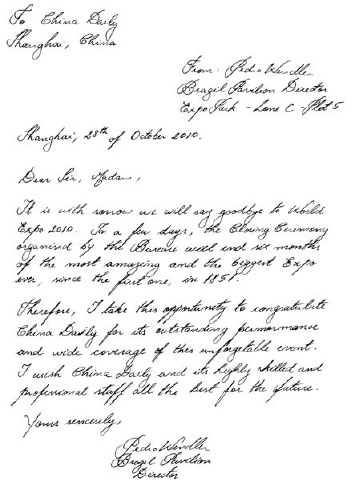 To China Daily
Shanghai, China
From: Pedro Wendler
Brazil Pavilion Director
Expo Park - Zone C - Plot 5
Shanghai, 28th of October 2010.
Dear Sir, Madam,
It is with sorrow we will say goodbye to World
Expo 2010. In a few days, the Closing Ceremony
organised by the Bureau will end six months
of the most amazing and the biggest Expo
ever, since the first one, in 1851.
Therefore, I take this opportunity to congratulate
China Daily for its outstanding performance
and wide coverage of this unforgetable event.
I wish China Daily and its highly skilled and
professional staff all the best for the future.
Yours sincerely,
Pedro Wendler
Brazil Pavilion
Director